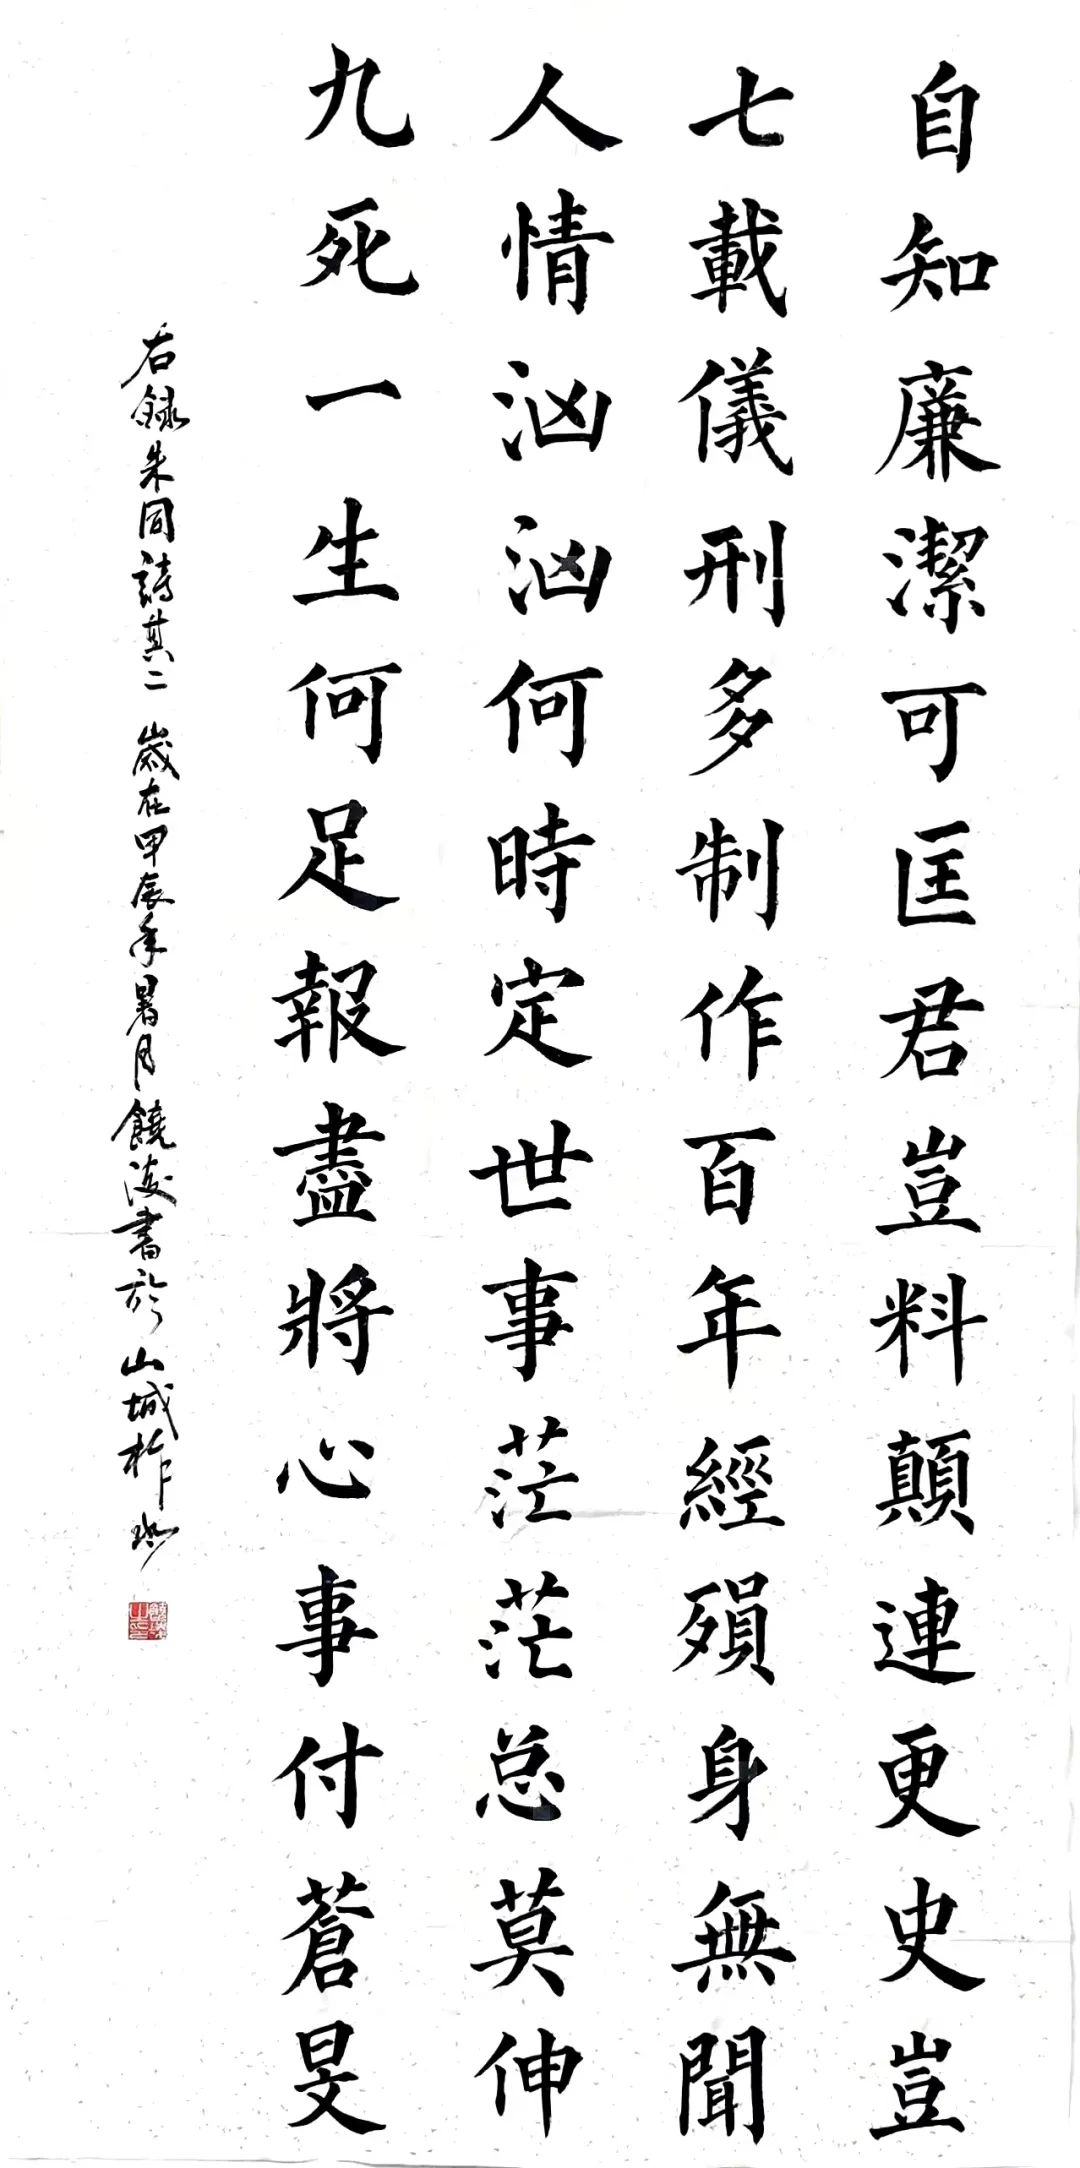 自知廉潔可匡君豈料顛連更史豈
七載儀刑多制作百年經殞身無聞
人情汹汹何時定世事茫茫总莫伸
九死一生何足報盡將心事付蒼旻
右録朱同詩其二 歲在甲辰年暑月饒波書於山城柞